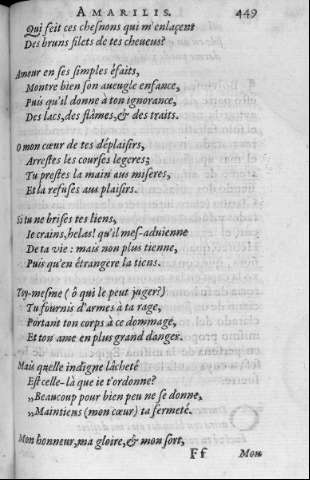 AMARILIS. 449
Qui feit ces chesnons qui m'enlaçent
Des bruns filets de tes cheueus?
Amour en ses simples éfaits,
Montre bien son aueugle enfance,
Puis qu'il donne à ton ignorance,
Des lacs, des flâmes, & des traits.
O mon cœur de tes déplaisirs,
Arrestes les courses legeres;
Tu prestes la main aus miseres,
Et la refuses aus plaisirs.
Si tu ne brises tes liens,
Ie crains, helas! qu'il mes-aduienne
De ta vie: mais non plus tienne,
Puis qu'en étrangere la tiens.
Toy-mesme (ô qui le peut juger?)
Tu fournis d'armes à ta rage,
Portant ton corps à ce dommage,
Et ton ame en plus grand danger.
Mais quelle indigne lâcheté
Est celle-là que ie t'ordonne?
„Beaucoup pour bien peu ne se donne,
„Maintiens (mon cœur) ta fermeté.
Mon honneur, ma gloire, & mon sort,
Ff Mon